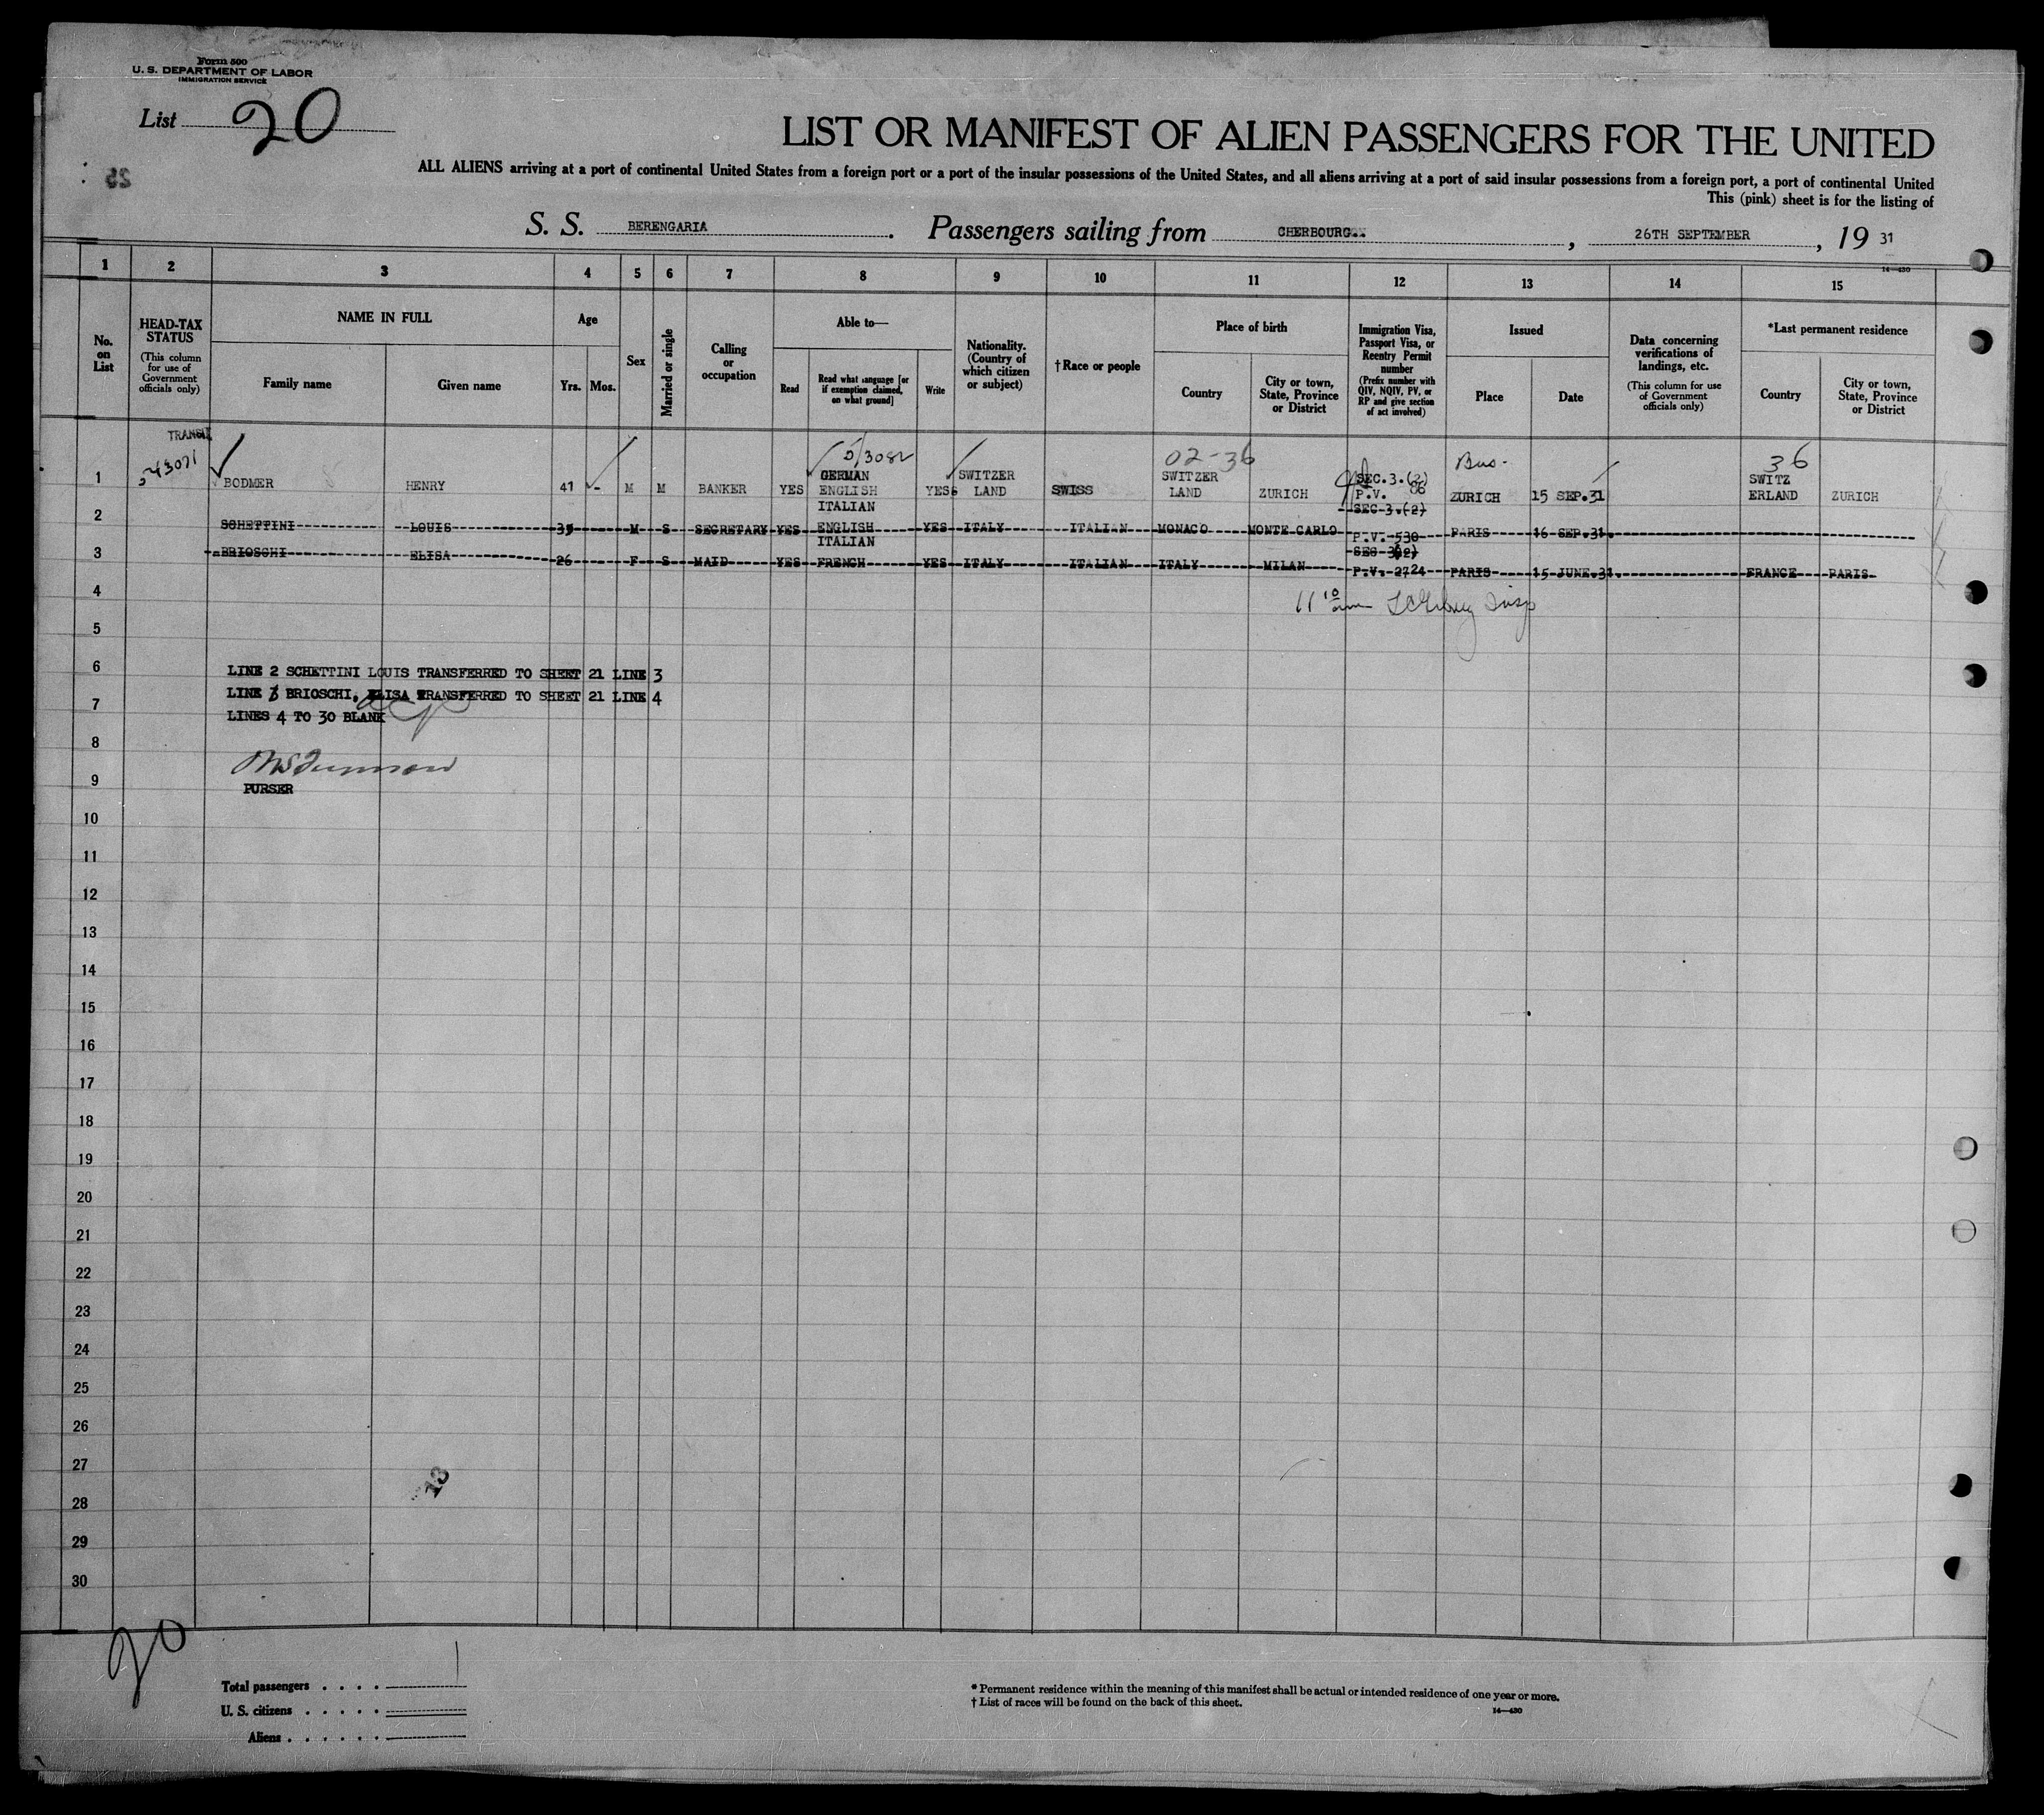 Form 500
U. S. DEPARTMENT OF LABOR
IMMIGRATION SERVICE
List 20
LIST OR MANIFEST OF ALIEN PASSENGERS FOR THE UNITED
ALL ALIENS arriving at a port of continental United States from a foreign port or a port of the insular possessions of the United States, and all aliens arriving at a port of said insular possessions from a foreign port, a port of continental United
This (pink) sheet is for the listing of
25
S. S. BERENGARIA. Passengers sailing from CHERBOURG.. , 26TH SEPTEMBER , 19 31
14—430
1 2 3 4 5 6 7 8 9 10 11 12 13 14 15
No. on List
HEAD-TAX STATUS
(This column for use of Government officials only)
NAME IN FULL
Family name
Given name
Age
Yrs. Mos.
Sex
Married or single
Calling or occupation
Able to—
Read
Read what language [or if exemption claimed, on what ground]
Write
Nationality. (Country of which citizen or subject)
†Race or people
Place of birth
Country
City or town, State, Province or District
Immigration Visa, Passport Visa, or Reentry Permit number
(Prefix number with QIV, NQIV, PV, or RP and give section of act involved)
Issued
Place
Date
Data concerning verifications of landings, etc.
(This column for use of Government officials only)
*Last permanent residence
Country
City or town, State, Province or District
TRANSIT
02-36
Bus.
36
1 BODMER HENRY 41 - M M BANKER YES GERMAN ENGLISH YES SWITZER LAND SWISS SWITZER LAND ZURICH SEC.3.(2) P.V. 86 ZURICH 15 SEP.31 SWITZ ERLAND ZURICH
2 SCHETTINI LOUIS 39 M S SECRETARY YES ITALIAN ENGLISH YES ITALY ITALIAN MONACO MONTE CARLO SEC 3.(2) P.V. 530 PARIS 16 SEP.31.
3 BRIOSCHI ELISA 26 F S MAID YES ITALIAN FRENCH YES ITALY ITALIAN ITALY MILAN SEC 3(2) P.V. 2724 PARIS 15 JUNE.31. FRANCE PARIS
4
5
6
LINE 2 SCHETTINI LOUIS TRANSFERRED TO SHEET 21 LINE 3
LINE 3 BRIOSCHI. ELISA TRANSFERRED TO SHEET 21 LINE 4
7
LINES 4 TO 30 BLANK
8
9
PURSER
10
11
12
13
14
15
16
17
18
19
20
21
22
23
24
25
26
27
28
29
30
20
Total passengers . . . . 1
U. S. citizens . . . . .
Aliens . . . . . .
* Permanent residence within the meaning of this manifest shall be actual or intended residence of one year or more.
† List of races will be found on the back of this sheet.
14—430